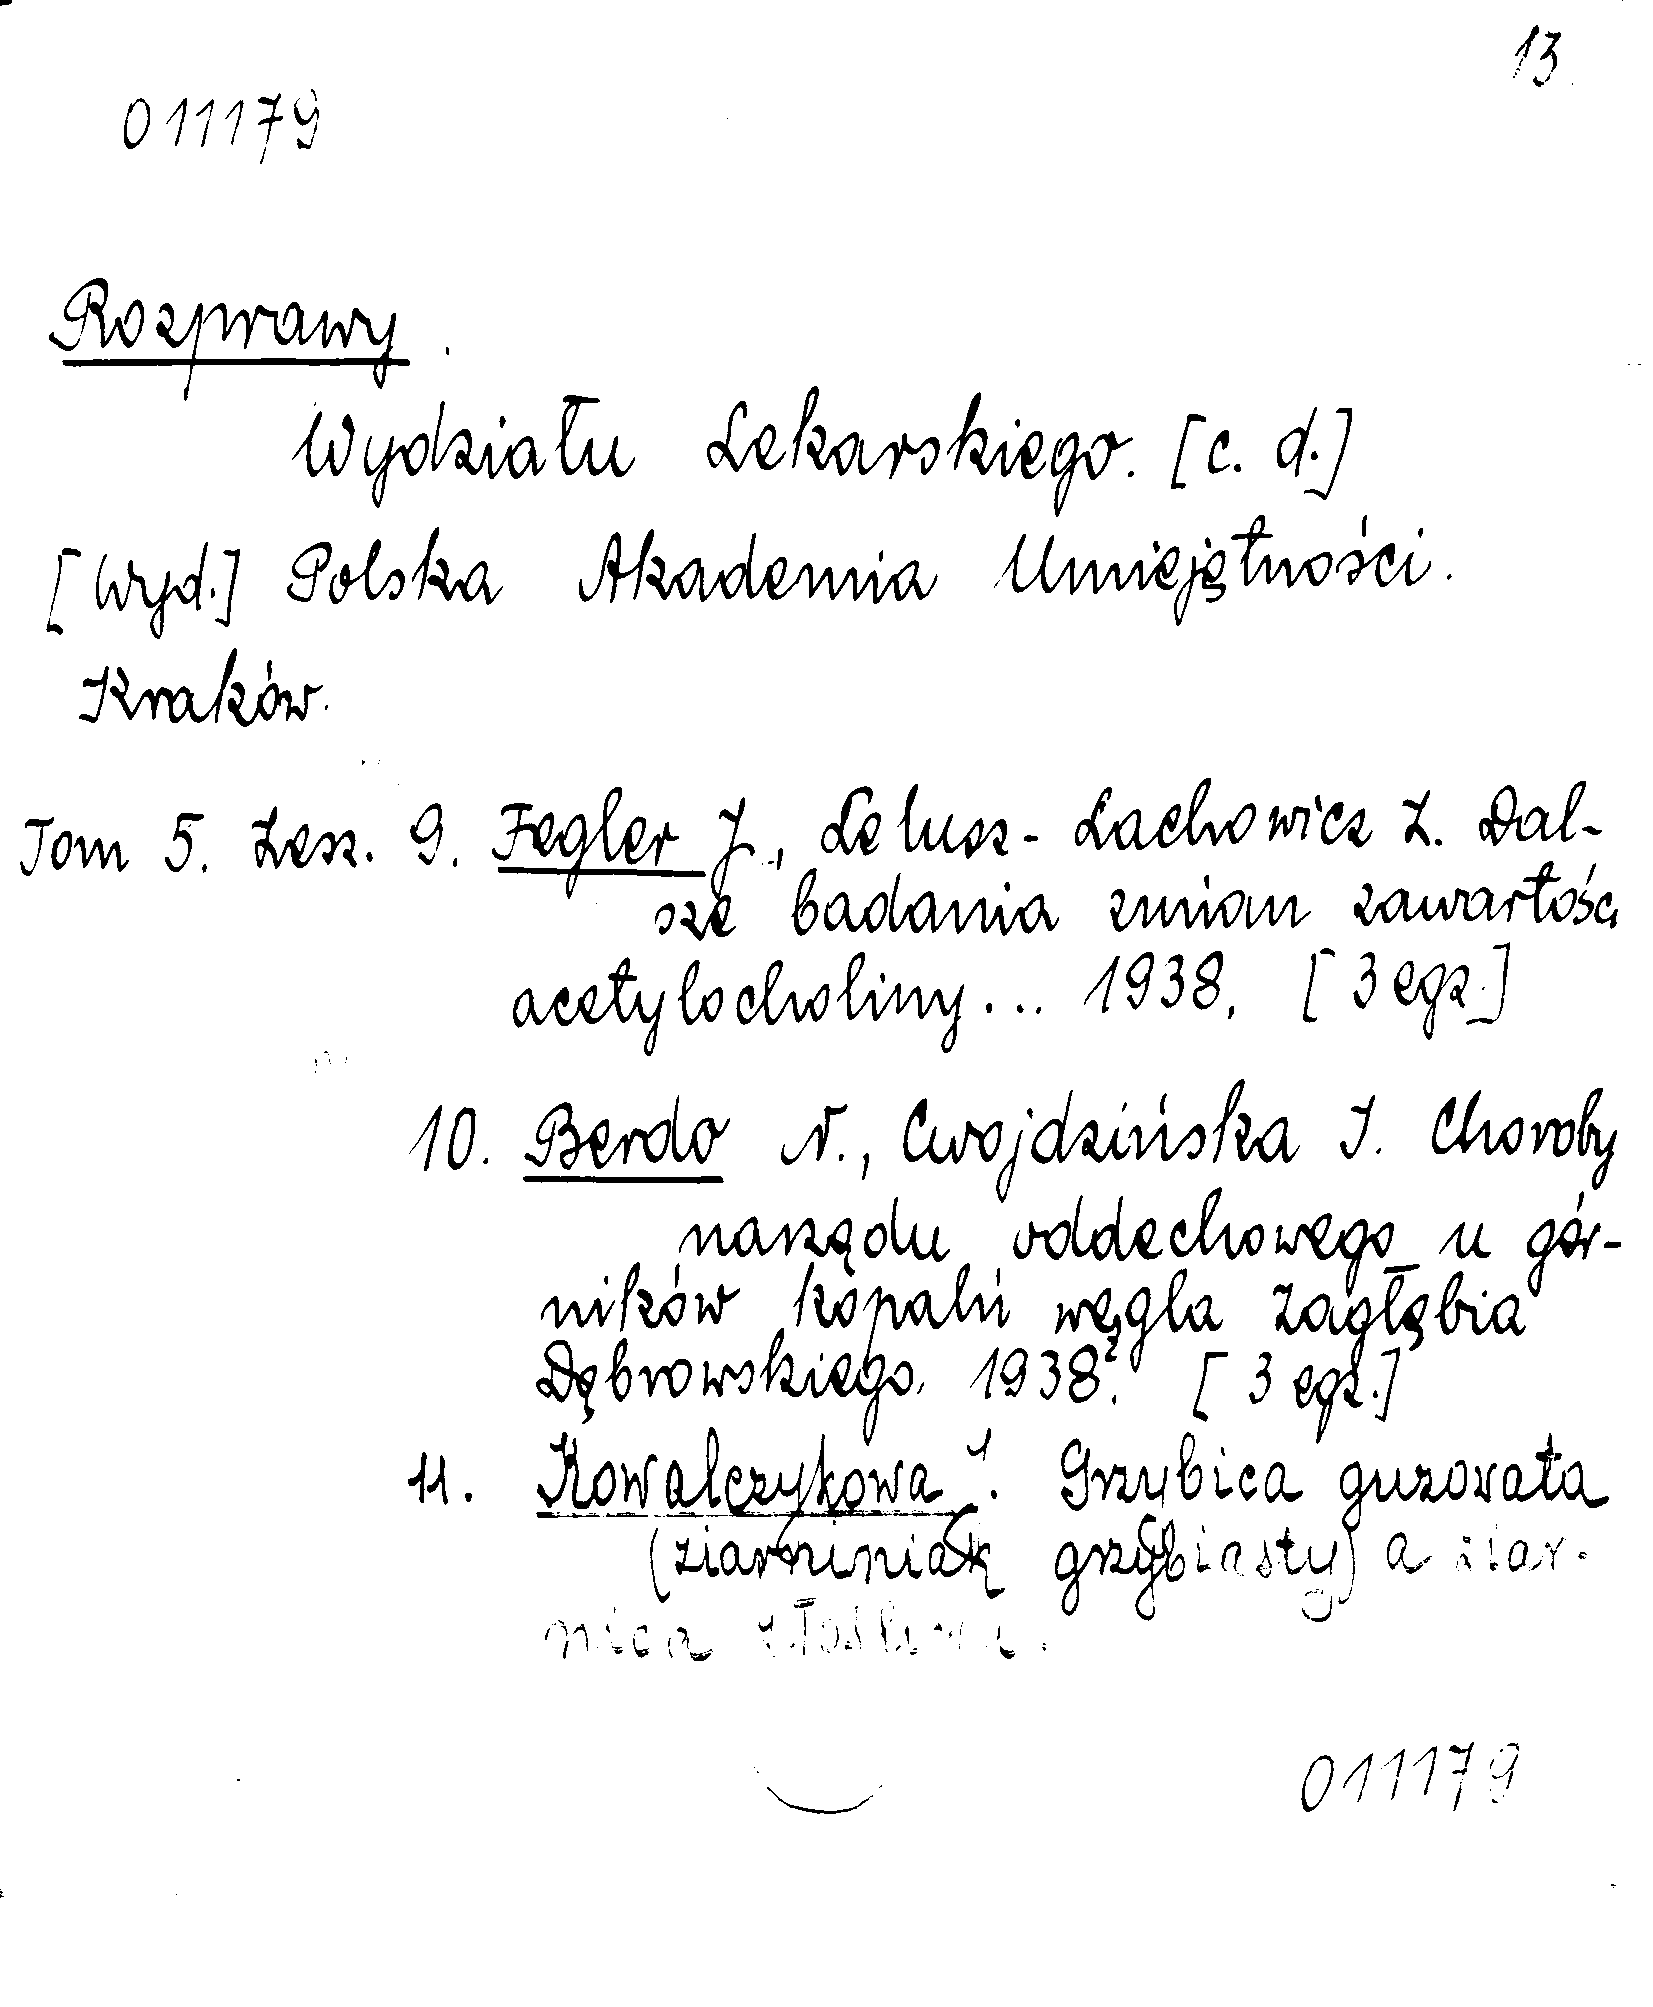 13
011179
Rozprawy
Wydziału Lekarskiego. [c. d.]
[Wyd.] Polska Akademia Umiejętności.
Kraków.
Tom 5. Zesz. 9. Fegler J., Lelusz-Lachowicz Z. Dal-
sze badania zmian zawartości
acetylocholiny... 1938. [3 egz.]
10. Berdo N., Cwojdzińska I. Choroby
narządu oddechowego u gór-
ników kopalń węgla Zagłębia
Dąbrowskiego. 1938. [3 egz.]
11. Kowalczykowa J. Grzybica guzowata
(ziarniniak grzybiasty) a ziar-
nica złośliwa.
011179